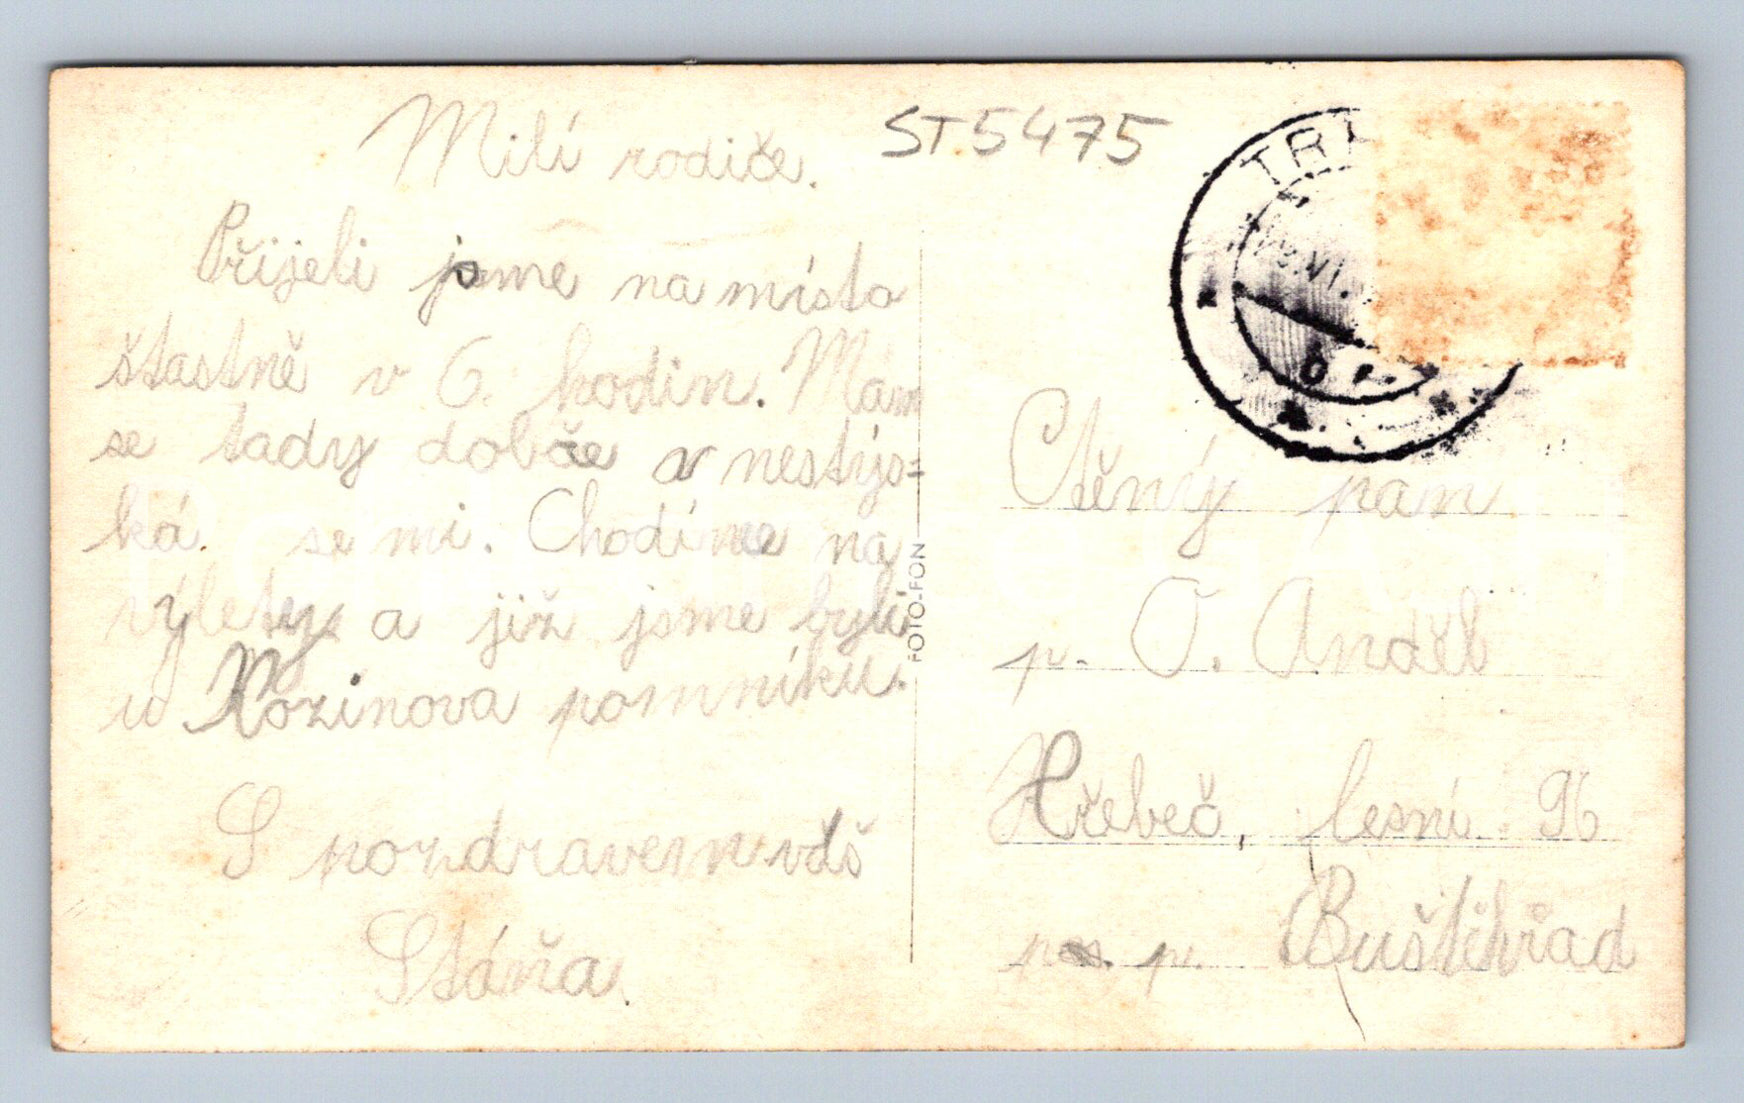 ST 5475
Milí rodiče.
Přijeli jsme na místo
štastně v 6. hodin. Mám
se tady dobře a nestýs=
ká. se mi. Chodíme na
výlety a již jsme byli
u Kozinova pomníku.
S pozdravem váš
Stáňa.
FOTO-FON
Ctěný pan
p. O. Anděl
Hřebeč, lesní 96
p. Buštěhrad